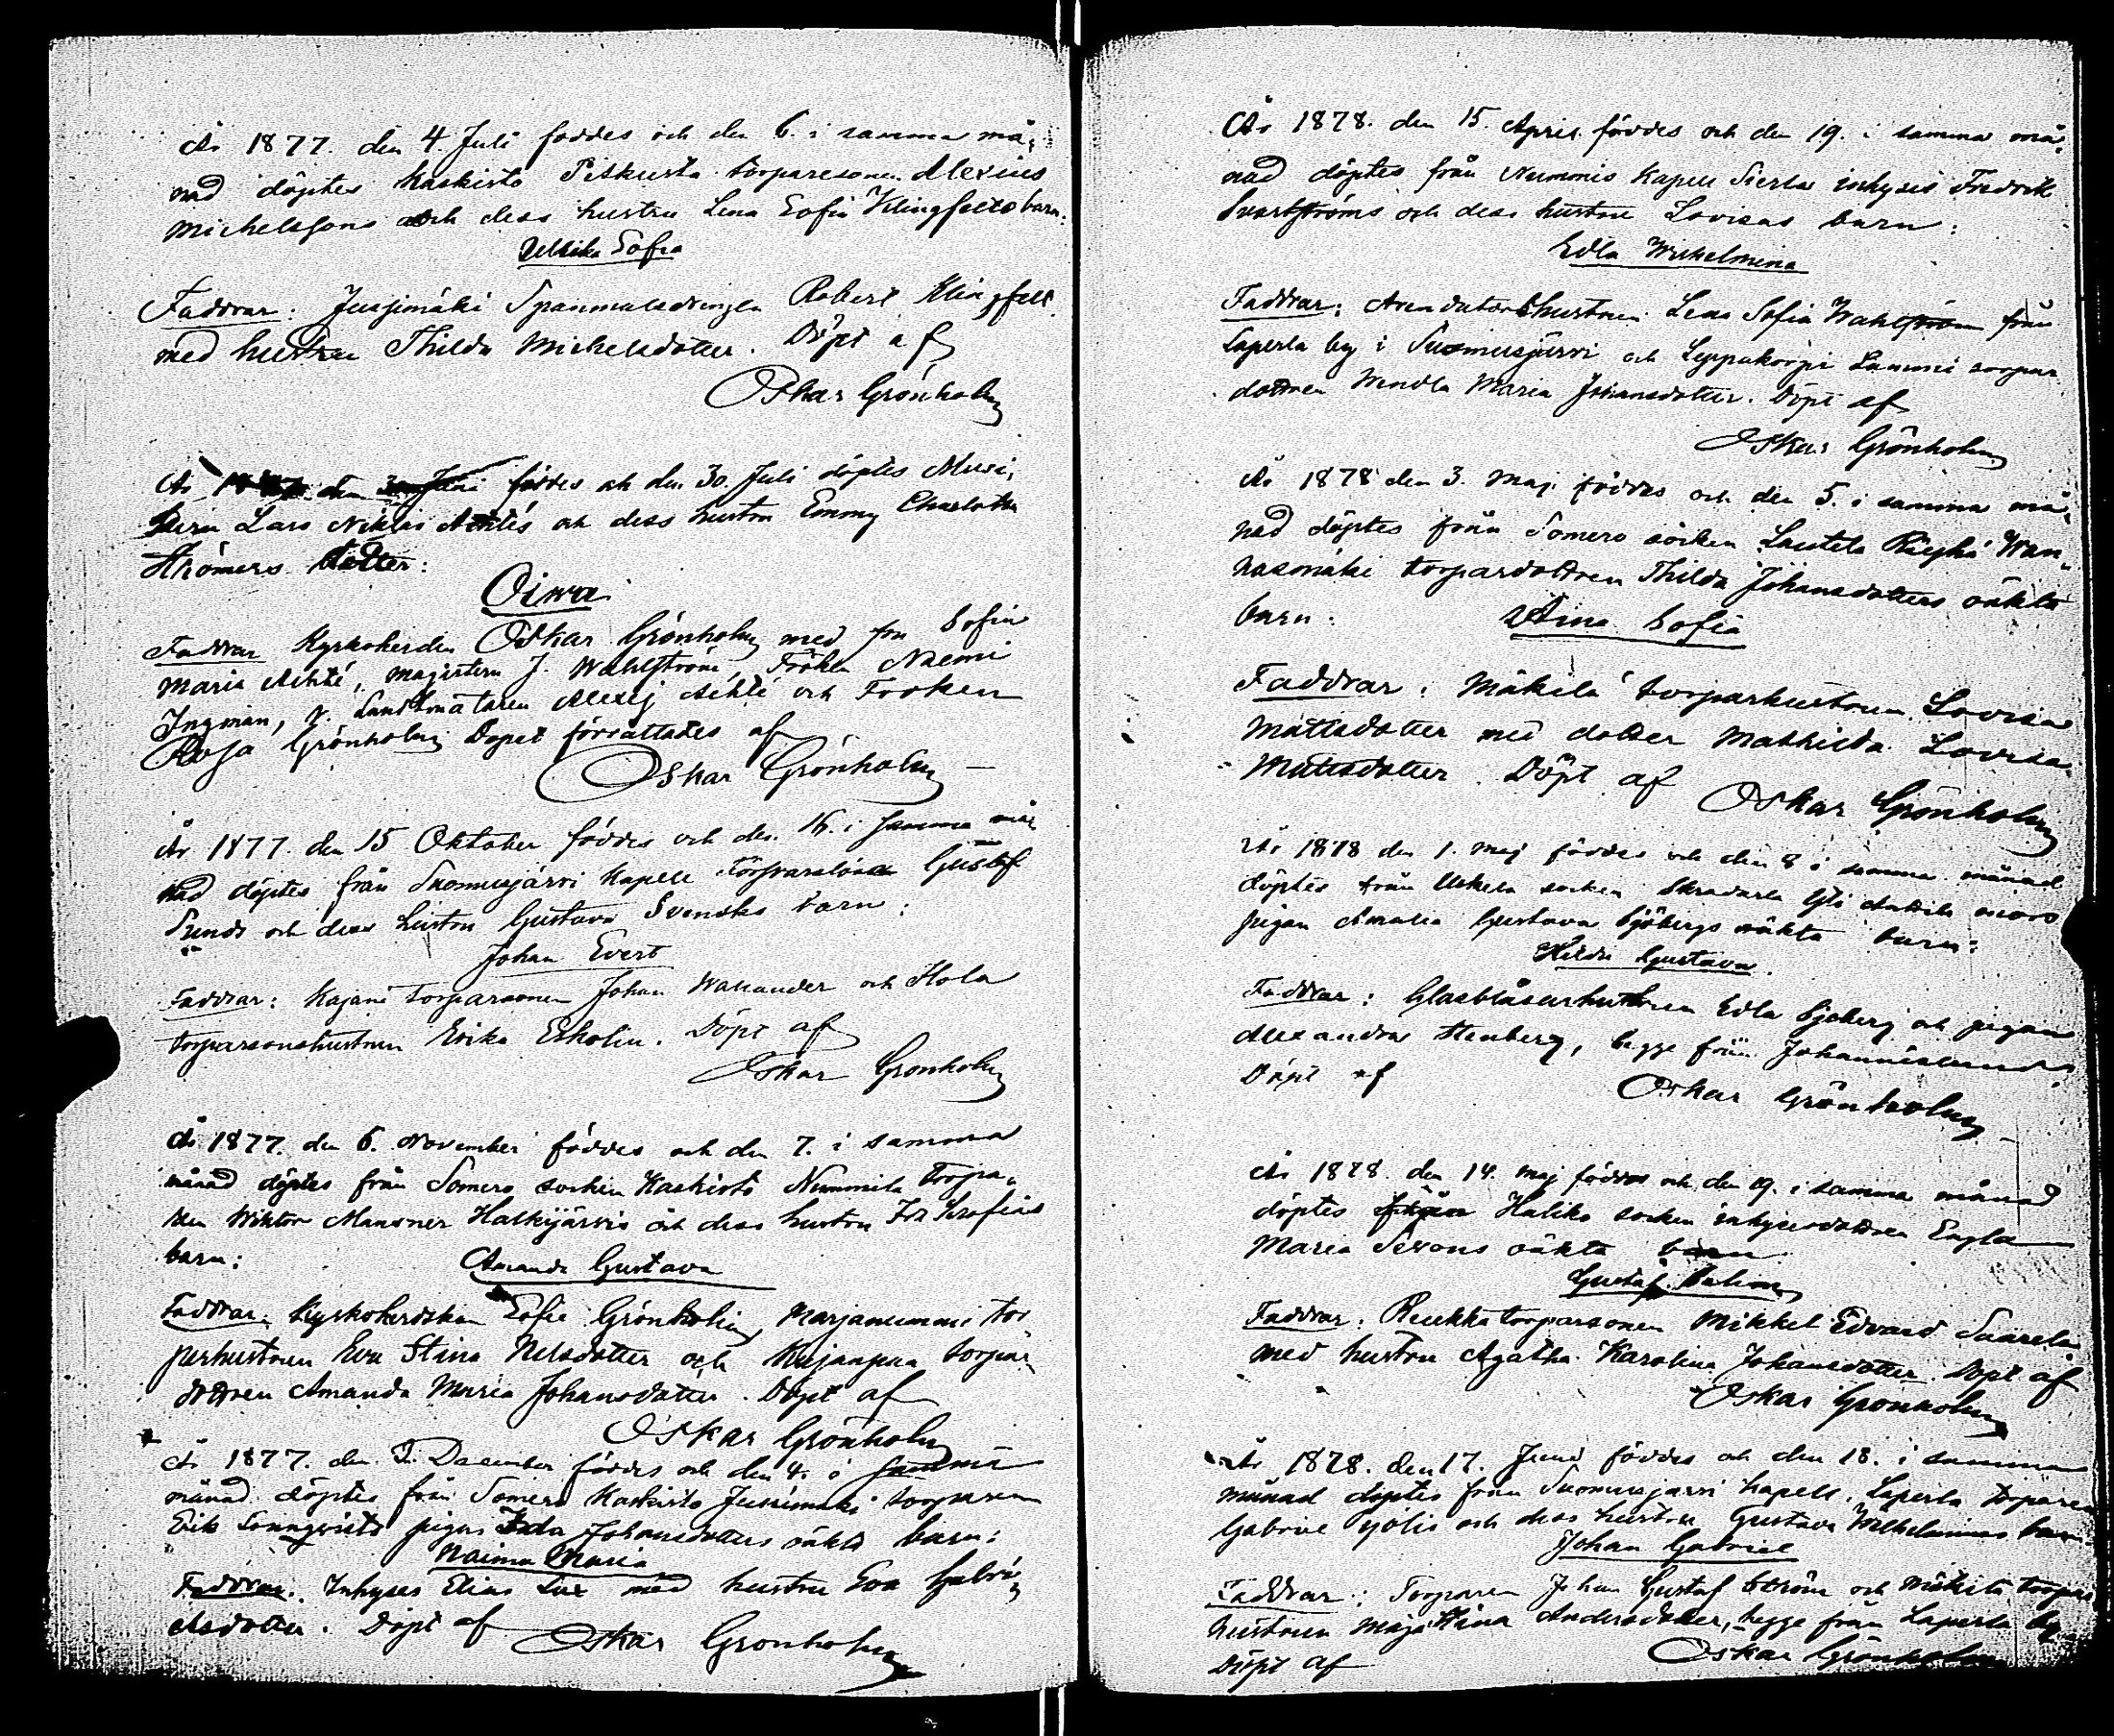 År 1877. den 4. Juli föddes och den 6. i samma må„
nad döptes Kaskisto Pitkusta torparesonen Alexius
Michelssons och dess hustru Lena Sofia Klingfelts barn:
Ulrika Sofia
Faddrar: Jussimäki Spanmalsdrengen Robert Klingfelt
med hustru Thilda Michelsdotter. Döpt af
Oskar Grönholm
År den Juni föddes och den 30. Juli döptes
Lars Niklas Achtés och dess hustru Emmy Charlotta
Strömers dotter:
Oiwa
Faddrar Kyrkoherden Oskar Grönholm med fru Sofia
Maria Achté, magistern J. Wahlström, Fröken Naemi
Ingman, v. Landtmätaren Alexej Achté och Fröken
Rosa Grönholm Dopet förrättades af
Oskar Grönholm
År 1877. den 15 Oktober föddes och den 16. i samma må„
nad döptes från Suomusjärvi Kapell Försvarslöse Gustaf
Sunds och dess hustru Gustava Svensks barn:
Johan Evert
Faddrar: Kajani torparsonen Johan Wallander och Hola
torparsonshustrun Erika Eskolin. Döpt af
Oskar Grönholm
År 1877. den 6. November föddes och den 7. i samma
månad döptes från Somero socken Kaskisto Nummila torpa„
ren Wiktor Manoner Halkijärvis och dess hustru Ida Serafias
barn: Amanda Gustava
Faddrar. Kyrkoherdskan Sofie Grönholm, Marjanummi tor
perhustrun Eva Stina Nilsdotter och Kujanpää torpar„
dottren Amanda Maria Johansdotter. Döpt af
Oskar Grönholm
År 1877. den 2. December föddes och den 4. i samma
månad döptes från Somero Kaskisto Jussimäki torparen
Erik Lönnqvists pigas Ida Johansdotters oäkta barn:
Naima Maria
Faddrar. Inhyses Elias Lux med hustru Eva Gabri„
elsdotter. Döpt af Oskar Grönholm
År 1878. den 15. April föddes och den 19. i samma må„
nad döptes från Nummis Kapell Sierla inhyses Fredrik
Svartströms och dess hustru Lovisas barn:
Edla Wilhelmina
Faddrar: Arendatorshustrun Lena Sofia Wahlström från
Laperla by i Suomusjärvi och Leppäkorpi Lammi torpar
dottren Wendla Maria Johansdotter. Döpt af
Oskar Grönholm
År 1878 den 3. Maj föddes och den 5. i samma må„
nad döptes från Somero socken Lautela Räyhä Wan„
hasmäki torpardottren Thilda Johansdotters oäkta
barn: Aina Sofia
Faddrar: Mäkelä torparhustrun Lovisa
Mattsdotter med dotter Mathilda Lovisa
Mattsdotter. Döpt af
Oskar Grönholm
År 1878 den 1. Maj föddes och den 8 i samma månad
döptes från Uskela socken
pigan Amalia Gustava Sjöbergs oäkta barn:
Hilda Gustava.
Faddrar: Glasblåsarhustrun Edla Sjöberg och pigan
Alexandra Stenberg, begge från Johannislund.
Döpt af Oskar Grönholm
År 1878. den 14. Maj föddes och den 19. i samma månad
döptes från Haliko socken inhysesdottren Engla
Maria Sexons oäkta barn
Gustaf
Faddrar: Reukka torparsonen Mikkel Edvard Saarela
med hustru Agatha Karolina Johansdotter. Döpt af
Oskar Grönholm
År 1878. den 17. Juni föddes och den 18. i samma
månad döptes från Suomusjärvi Kapell, Laperla torparen
Gabriel och dess hustru Gustava Wilhelminas barn
Johan Gabriel
Faddrar: Torparen Johan Gustaf Ström och Mäkilä torpar
hustrun Maja Stina Andersdotter, begge från Laperla by.
Döpt af Oskar Grönholm